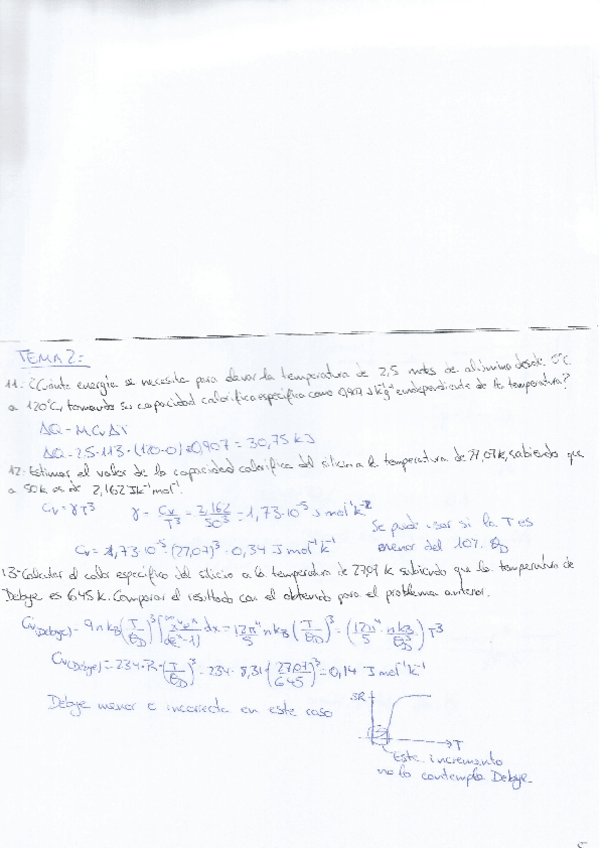 TEMA 2:
11. ¿Cuánta energía se necesita para elevar la temperatura de 2,5 moles de aluminio desde 0°C
a 120°C, tomando su capacidad calorífica específica como 0,907 J kg⁻¹ independiente de la temperatura?
ΔQ = M Cv ΔT
ΔQ = 2.5·113·(120-0)·0,907 = 30,75 kJ
12. Estimar el valor de la capacidad calorífica del silicio a la temperatura de 27,07 k, sabiendo que
a 50k es de 2,162 J k⁻¹ mol⁻¹.
Cv = γT³ γ = Cv/T³ = 2,162/50³ = 1,73·10⁻⁵ J mol⁻¹ k⁻²
Se puede usar si la T es
menor del 10% θD
Cv = 1,73·10⁻⁵·(27,07)³ = 0,34 J mol⁻¹ k⁻¹
13- Calcular el calor específico del silicio a la temperatura de 27,07 k sabiendo que la temperatura de
Debye es 645 k. Comparar el resultado con el obtenido para el problema anterior.
Cv(Debye) = 9nkB (T/θD)³ ∫ x⁴eˣ/(eˣ-1) dx = 12π⁴/5 nkB (T/θD)³ = (12π⁴/5 · nkB/θD³) T³
Cv(Debye) = 234·R·(T/θD)³ = 234·8,31·(27,07/645)³ = 0,14 J mol⁻¹ k⁻¹
Debye menor e incorrecta en este caso
3R
T
Este incremento
no lo contempla Debye.